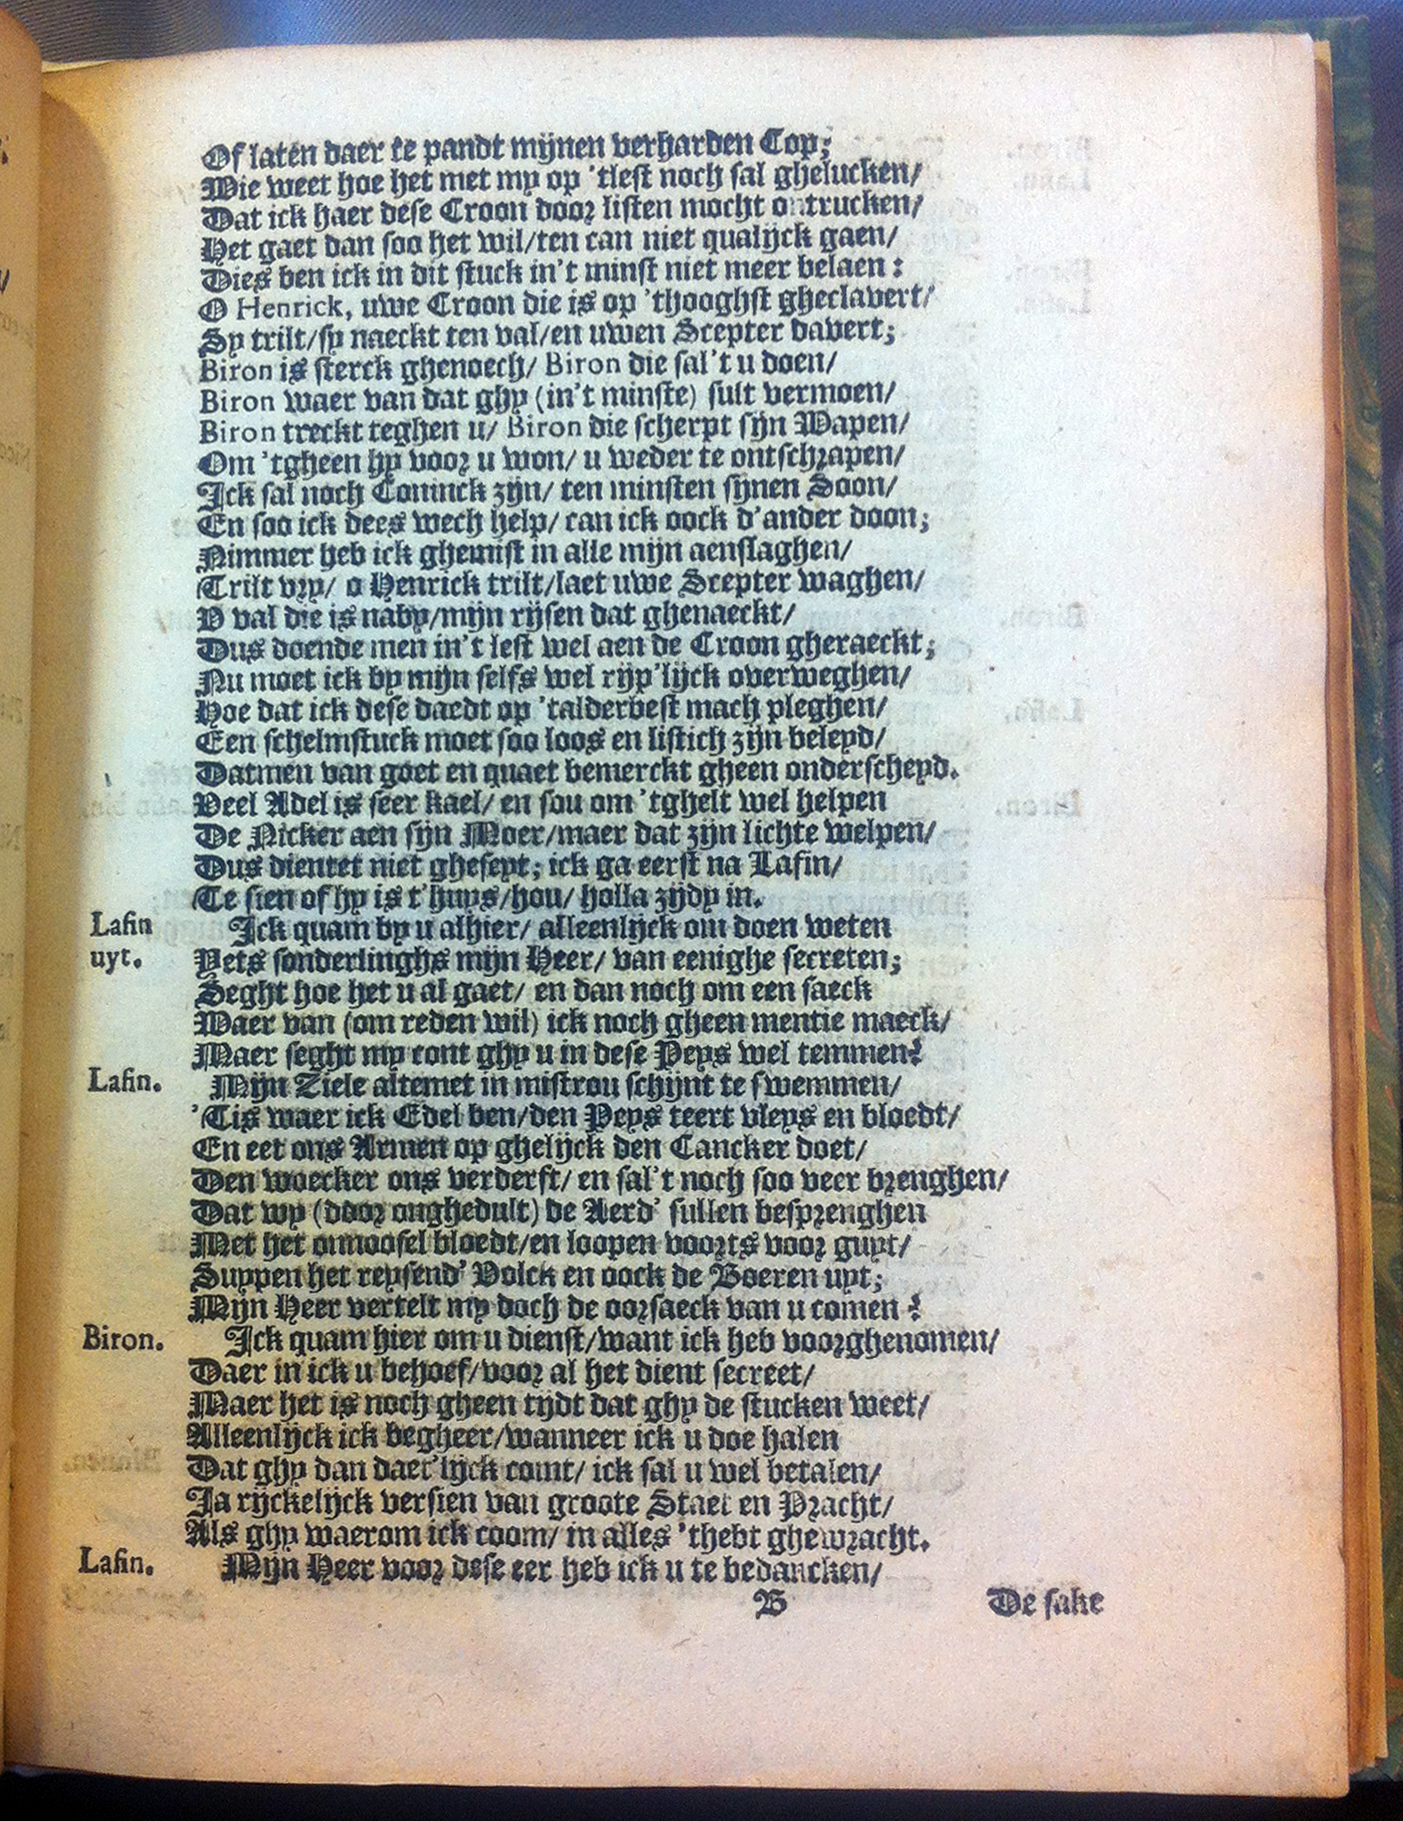 Of laten daer te pandt mijnen verharden Cop;
Wie weet hoe het met my op 'tlest noch sal ghelucken/
Dat ick haer dese Croon door listen mocht ontrucken/
Het gaet dan soo het wil/ten can niet qualijck gaen/
Dies ben ick in dit stuck in't minst niet meer belaen:
O Henrick, uwe Croon die is op 'thooghst gheclavert/
Sy trilt/sy naeckt ten val/en uwen Scepter davert;
Biron is sterck ghenoech/ Biron die sal't u doen/
Biron waer van dat ghy (in't minste) sult vermoen/
Biron treckt teghen u/ Biron die scherpt sijn Wapen/
Om 'tgheen hy voor u won/ u weder te ontschrapen/
Ick sal noch Coninck zijn/ ten minsten sijnen Soon/
En soo ick dees wech help/ can ick oock d'ander doon;
Nimmer heb ick ghemist in alle mijn aenslaghen/
Trilt vry/ o Henrick trilt/laet uwe Scepter waghen/
V val die is naby/mijn rijsen dat ghenaeckt/
Dus doende men in't lest wel aen de Croon gheraeckt;
Nu moet ick by mijn selfs wel rijp'lijck overweghen/
Hoe dat ick dese daedt op 'talderbest mach pleghen/
Een schelmstuck moet soo loos en listich zijn beleyd/
Datmen van goet en quaet bemerckt gheen onderscheyd.
Veel Adel is seer kael/ en sou om 'tghelt wel helpen
De Nicker aen sijn Moer/maer dat zijn lichte welpen/
Dus dientet niet gheseyt; ick ga eerst na Lafin/
Te sien of hy is t'huys/hou/ holla zijdy in.
Lafin uyt. Ick quam by u alhier/ alleenlijck om doen weten
Yets sonderlinghs mijn Heer/ van eenighe secreten;
Seght hoe het u al gaet/ en dan noch om een saeck
Waer van (om reden wil) ick noch gheen mentie maeck/
Maer seght my cont ghy u in dese Peys wel temmen?
Lafin. Mijn Ziele altemet in mistrou schijnt te swemmen/
'Tis waer ick Edel ben/den Peys teert vleys en bloedt/
En eet ons Armen op ghelijck den Cancker doet/
Den woecker ons verderft/ en sal't noch soo veer brenghen/
Dat wy (door onghedult) de Aerd' sullen besprenghen
Met het onnoosel bloedt/en loopen voorts voor guyt/
Suypen het reysend' Volck en oock de Boeren uyt;
Mijn Heer vertelt my doch de oorsaeck van u comen?
Biron. Ick quam hier om u dienst/want ick heb voorghenomen/
Daer in ick u behoef/voor al het dient secreet/
Maer het is noch gheen tijdt dat ghy de stucken weet/
Alleenlijck ick begheer/wanneer ick u doe halen
Dat ghy dan daet'lijck comt/ ick sal u wel betalen/
Ja rijckelijck versien van groote Staet en Pracht/
Als ghy waerom ick coom/ in alles 'thebt ghewracht.
Lafin. Mijn Heer voor dese eer heb ick u te bedancken/
B De sake